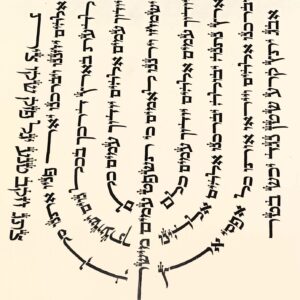 אבג יתץ קרע שטן נגד יכש בטר
יברכנו אלהים וייראו אותו כל אפסי
ארץ נתנה יבולה יברכנו אלהים
יודוך עמים אלהים יודוך עמים כלם
ישמחו וירננו לאמים כי תשפוט עמים מישר
יודוך עמים אלהים יודוך עמים כלם
לדעת בארץ דרכך בכל גוים ישועתך
אלהים יחננו ויברכנו יאר פניו אתנו סלה